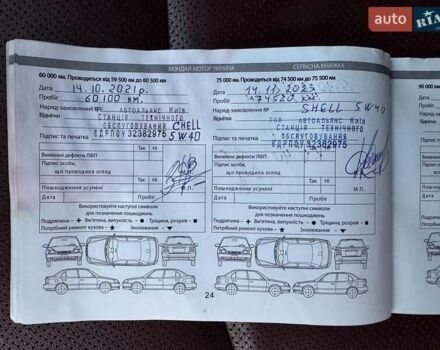 AUTO RIA
ХЮНДАЙ МОТОР УКРАЇНА
СЕРВІСНА КНИЖКА
60 000 км. Проводиться від 59 500 км до 60 500 км
Дата 14.10.2021р.
Пробіг 60100 км.
Наряд-замовлення № АВТОАЛЬЯНС КИЇВ
Відмітки СТАНЦІЯ ТЕХНІЧНОГО
ОБСЛУГОВУВАННЯ SHELL
Підпис та печатка ЄДРПОУ 32382975 5W40
Так Ні
Виявлені дефекти ЛФП
Підпис особи,
що проводила огляд М.П.
Пошкодження усунені
Дата Пробіг Так Ні
Використовуйте наступні символи
для позначення пошкоджень:
Подряпина – Вм'ятина, випуклість – Тріщина, розрив –
Потрібний ремонт кузова – Сколювання –
75 000 км. Проводиться від 74 500 км до 75 500 км
Дата 14.11.2023
Пробіг 74520 км.
Наряд-замовлення № SHELL 5W40
Відмітки ТОВ АВТОАЛЬЯНС КИЇВ
СТАНЦІЯ ТЕХНІЧНОГО
ОБСЛУГОВУВАННЯ
Підпис та печатка ЄДРПОУ 32382975
Так Ні
Виявлені дефекти ЛФП
Підпис особи,
що проводила огляд М.П.
Пошкодження усунені
Дата Пробіг Так Ні
Використовуйте наступні символи
для позначення пошкоджень:
Подряпина – Вм'ятина, випуклість – Тріщина, розрив –
Потрібний ремонт кузова – Сколювання –
24
90 000
Дата
Пробіг
Наряд-
Відмітки
Підпис